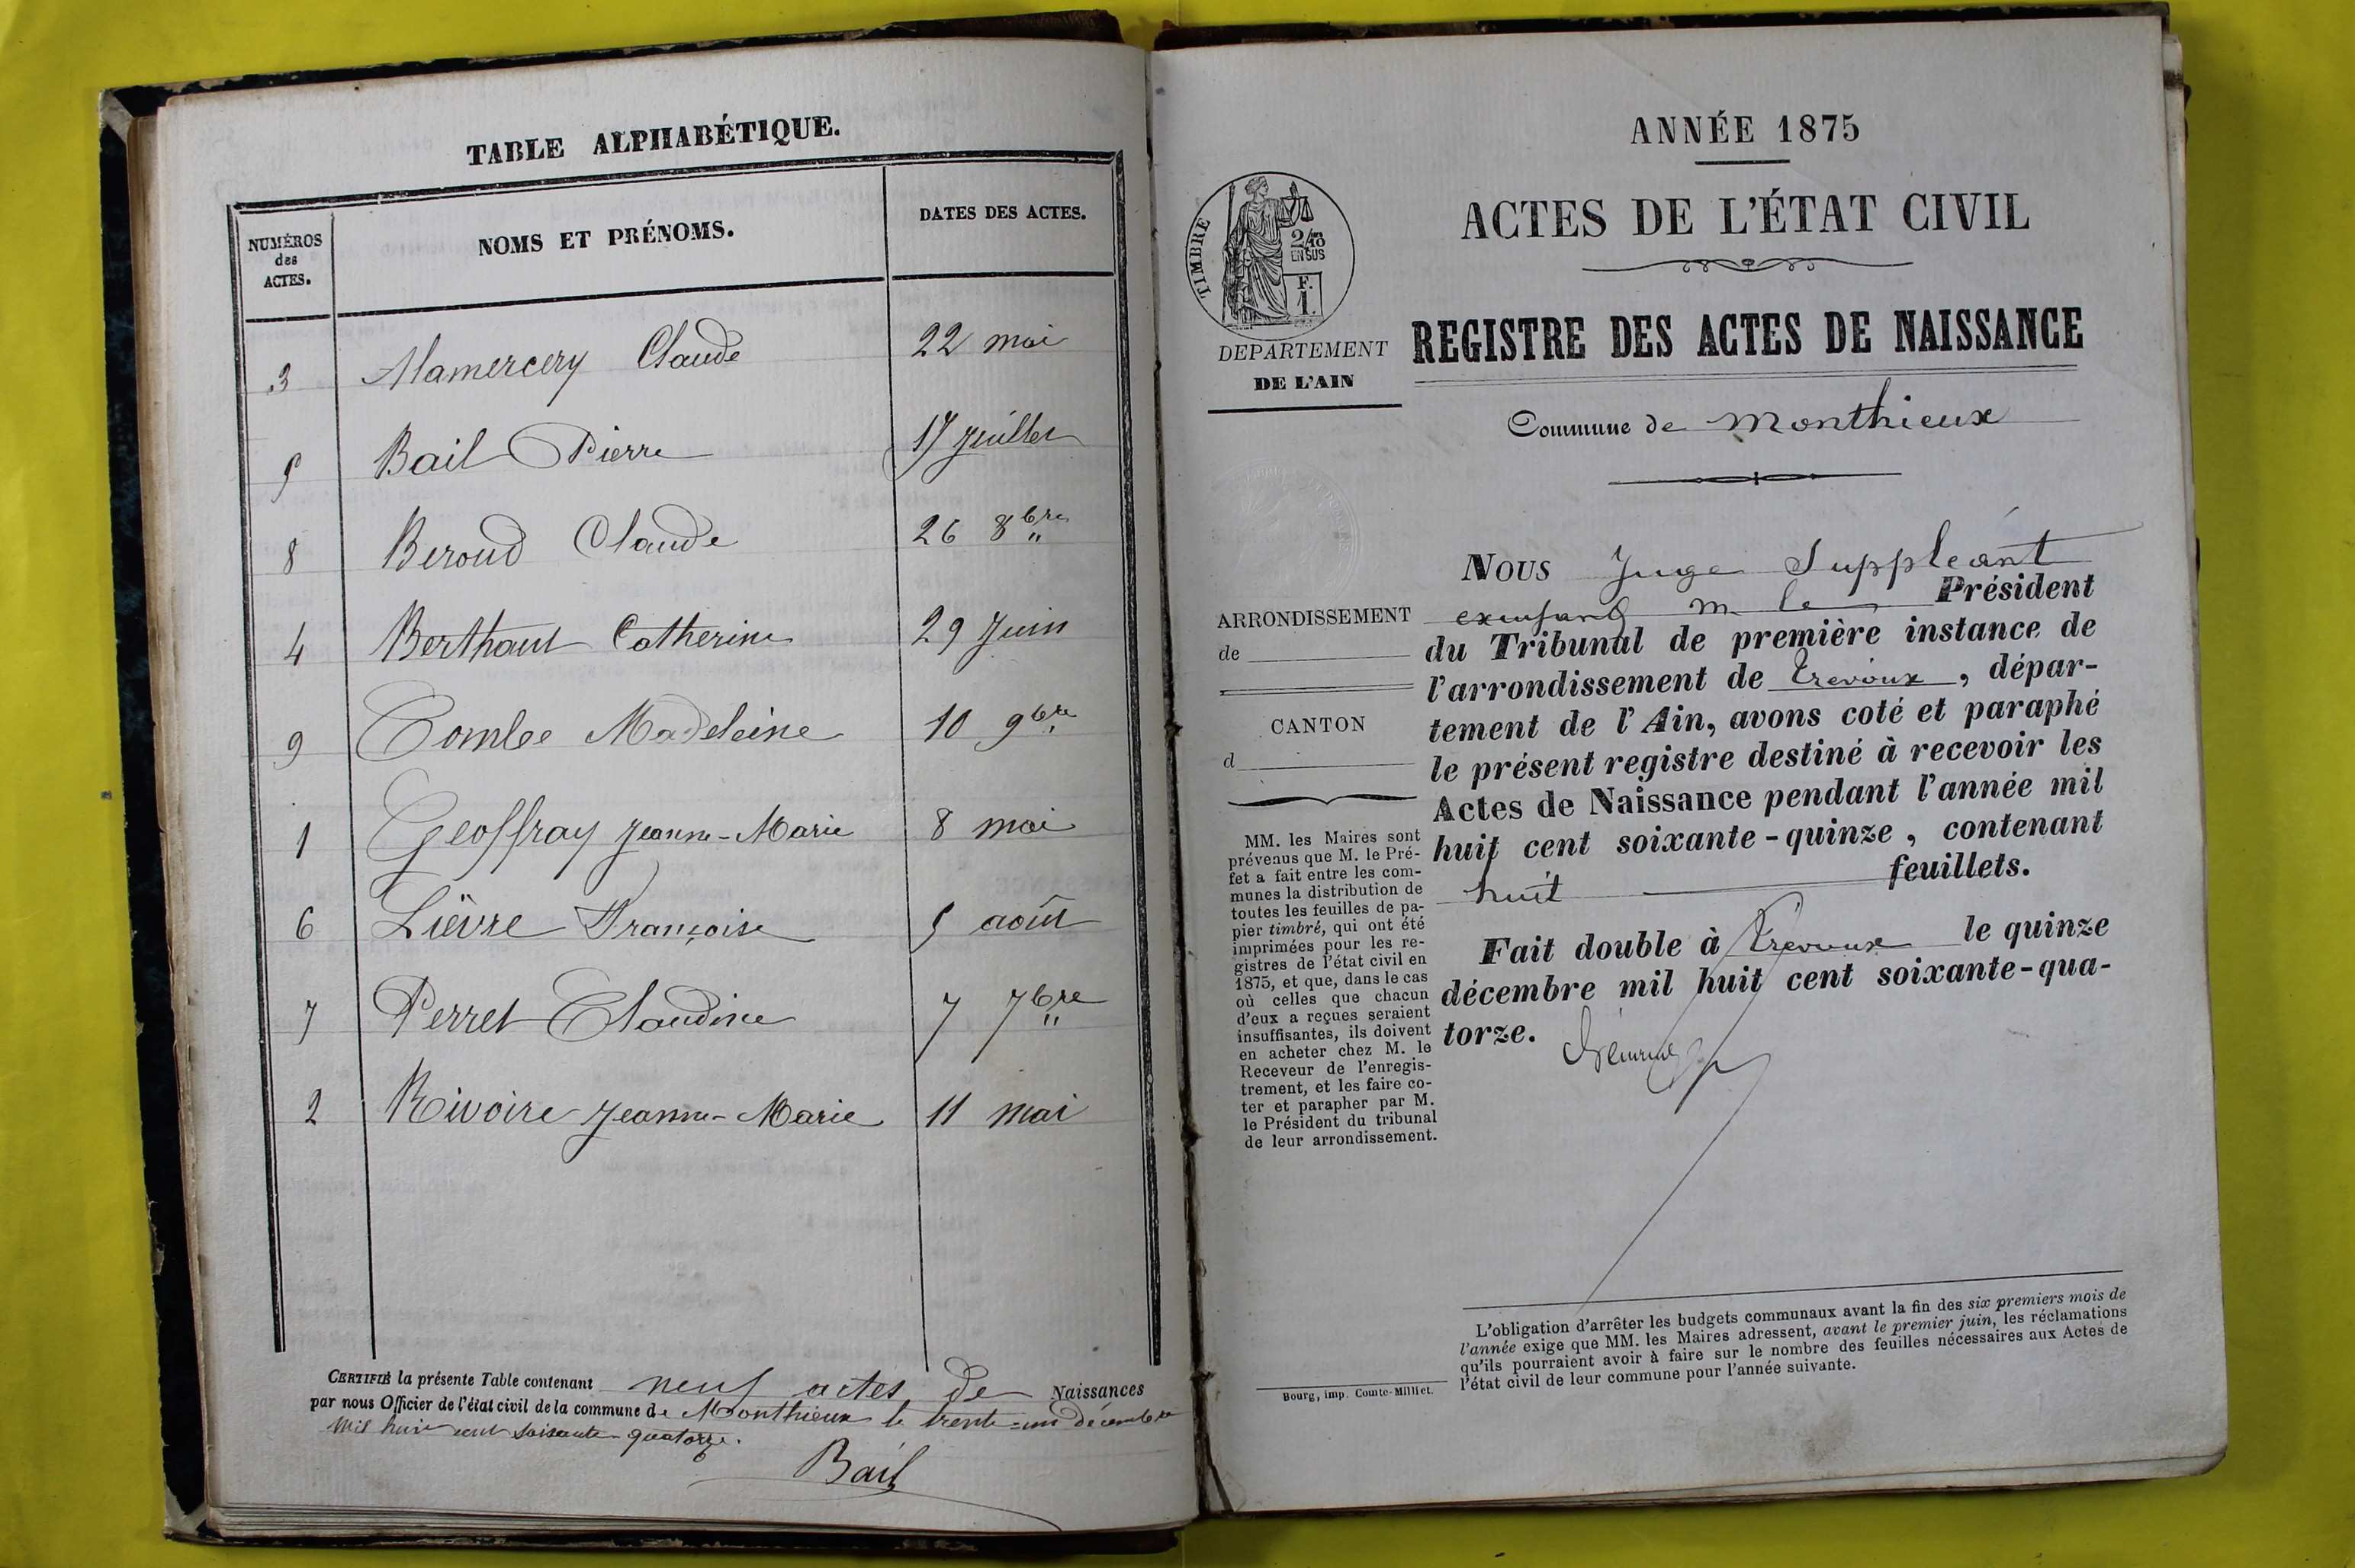 TABLE ALPHABÉTIQUE.
NUMÉROS des ACTES. NOMS ET PRÉNOMS. DATES DES ACTES.
3 Alamercery Claude 22 mai
5 Bail Pierre 17 juillet
8 Beroud Claude 26 8bre
4 Berthaut Catherine 29 Juin
9 Combe Madeleine 10 9bre
1 Geoffray Jeanne-Marie 8 mai
6 Lièvre Françoise 5 août
7 Perret Claudine 7 7bre
2 Rivoire Jeanne-Marie 11 mai
CERTIFIÉ la présente Table contenant neuf actes de Naissances
par nous Officier de l'état civil de la commune de Monthieux le trente-un décembre
mil huit cent soixante-quatorze.
Bail
ANNÉE 1875
ACTES DE L'ÉTAT CIVIL
TIMBRE
2/10
EN SUS
F.
1.
DEPARTEMENT
DE L'AIN
REGISTRE DES ACTES DE NAISSANCE
Commune de Monthieux
ARRONDISSEMENT
de
CANTON
d
MM. les Maires sont
prévenus que M. le Pré-
fet a fait entre les com-
munes la distribution de
toutes les feuilles de pa-
pier timbré, qui ont été
imprimées pour les re-
gistres de l'état civil en
1875, et que, dans le cas
où celles que chacun
d'eux a reçues seraient
insuffisantes, ils doivent
en acheter chez M. le
Receveur de l'enregis-
trement, et les faire co-
ter et parapher par M.
le Président du tribunal
de leur arrondissement.
NOUS Juge Suppléant
m le Président
du Tribunal de première instance de
l'arrondissement de Trevoux, dépar-
tement de l'Ain, avons coté et paraphé
le présent registre destiné à recevoir les
Actes de Naissance pendant l'année mil
huit cent soixante-quinze, contenant
huit feuillets.
Fait double à Trevoux le quinze
décembre mil huit cent soixante-qua-
torze.
L'obligation d'arrêter les budgets communaux avant la fin des six premiers mois de
l'année exige que MM. les Maires adressent, avant le premier juin, les réclamations
qu'ils pourraient avoir à faire sur le nombre des feuilles nécessaires aux Actes de
l'état civil de leur commune pour l'année suivante.
Bourg, imp. Comte-Milliet.